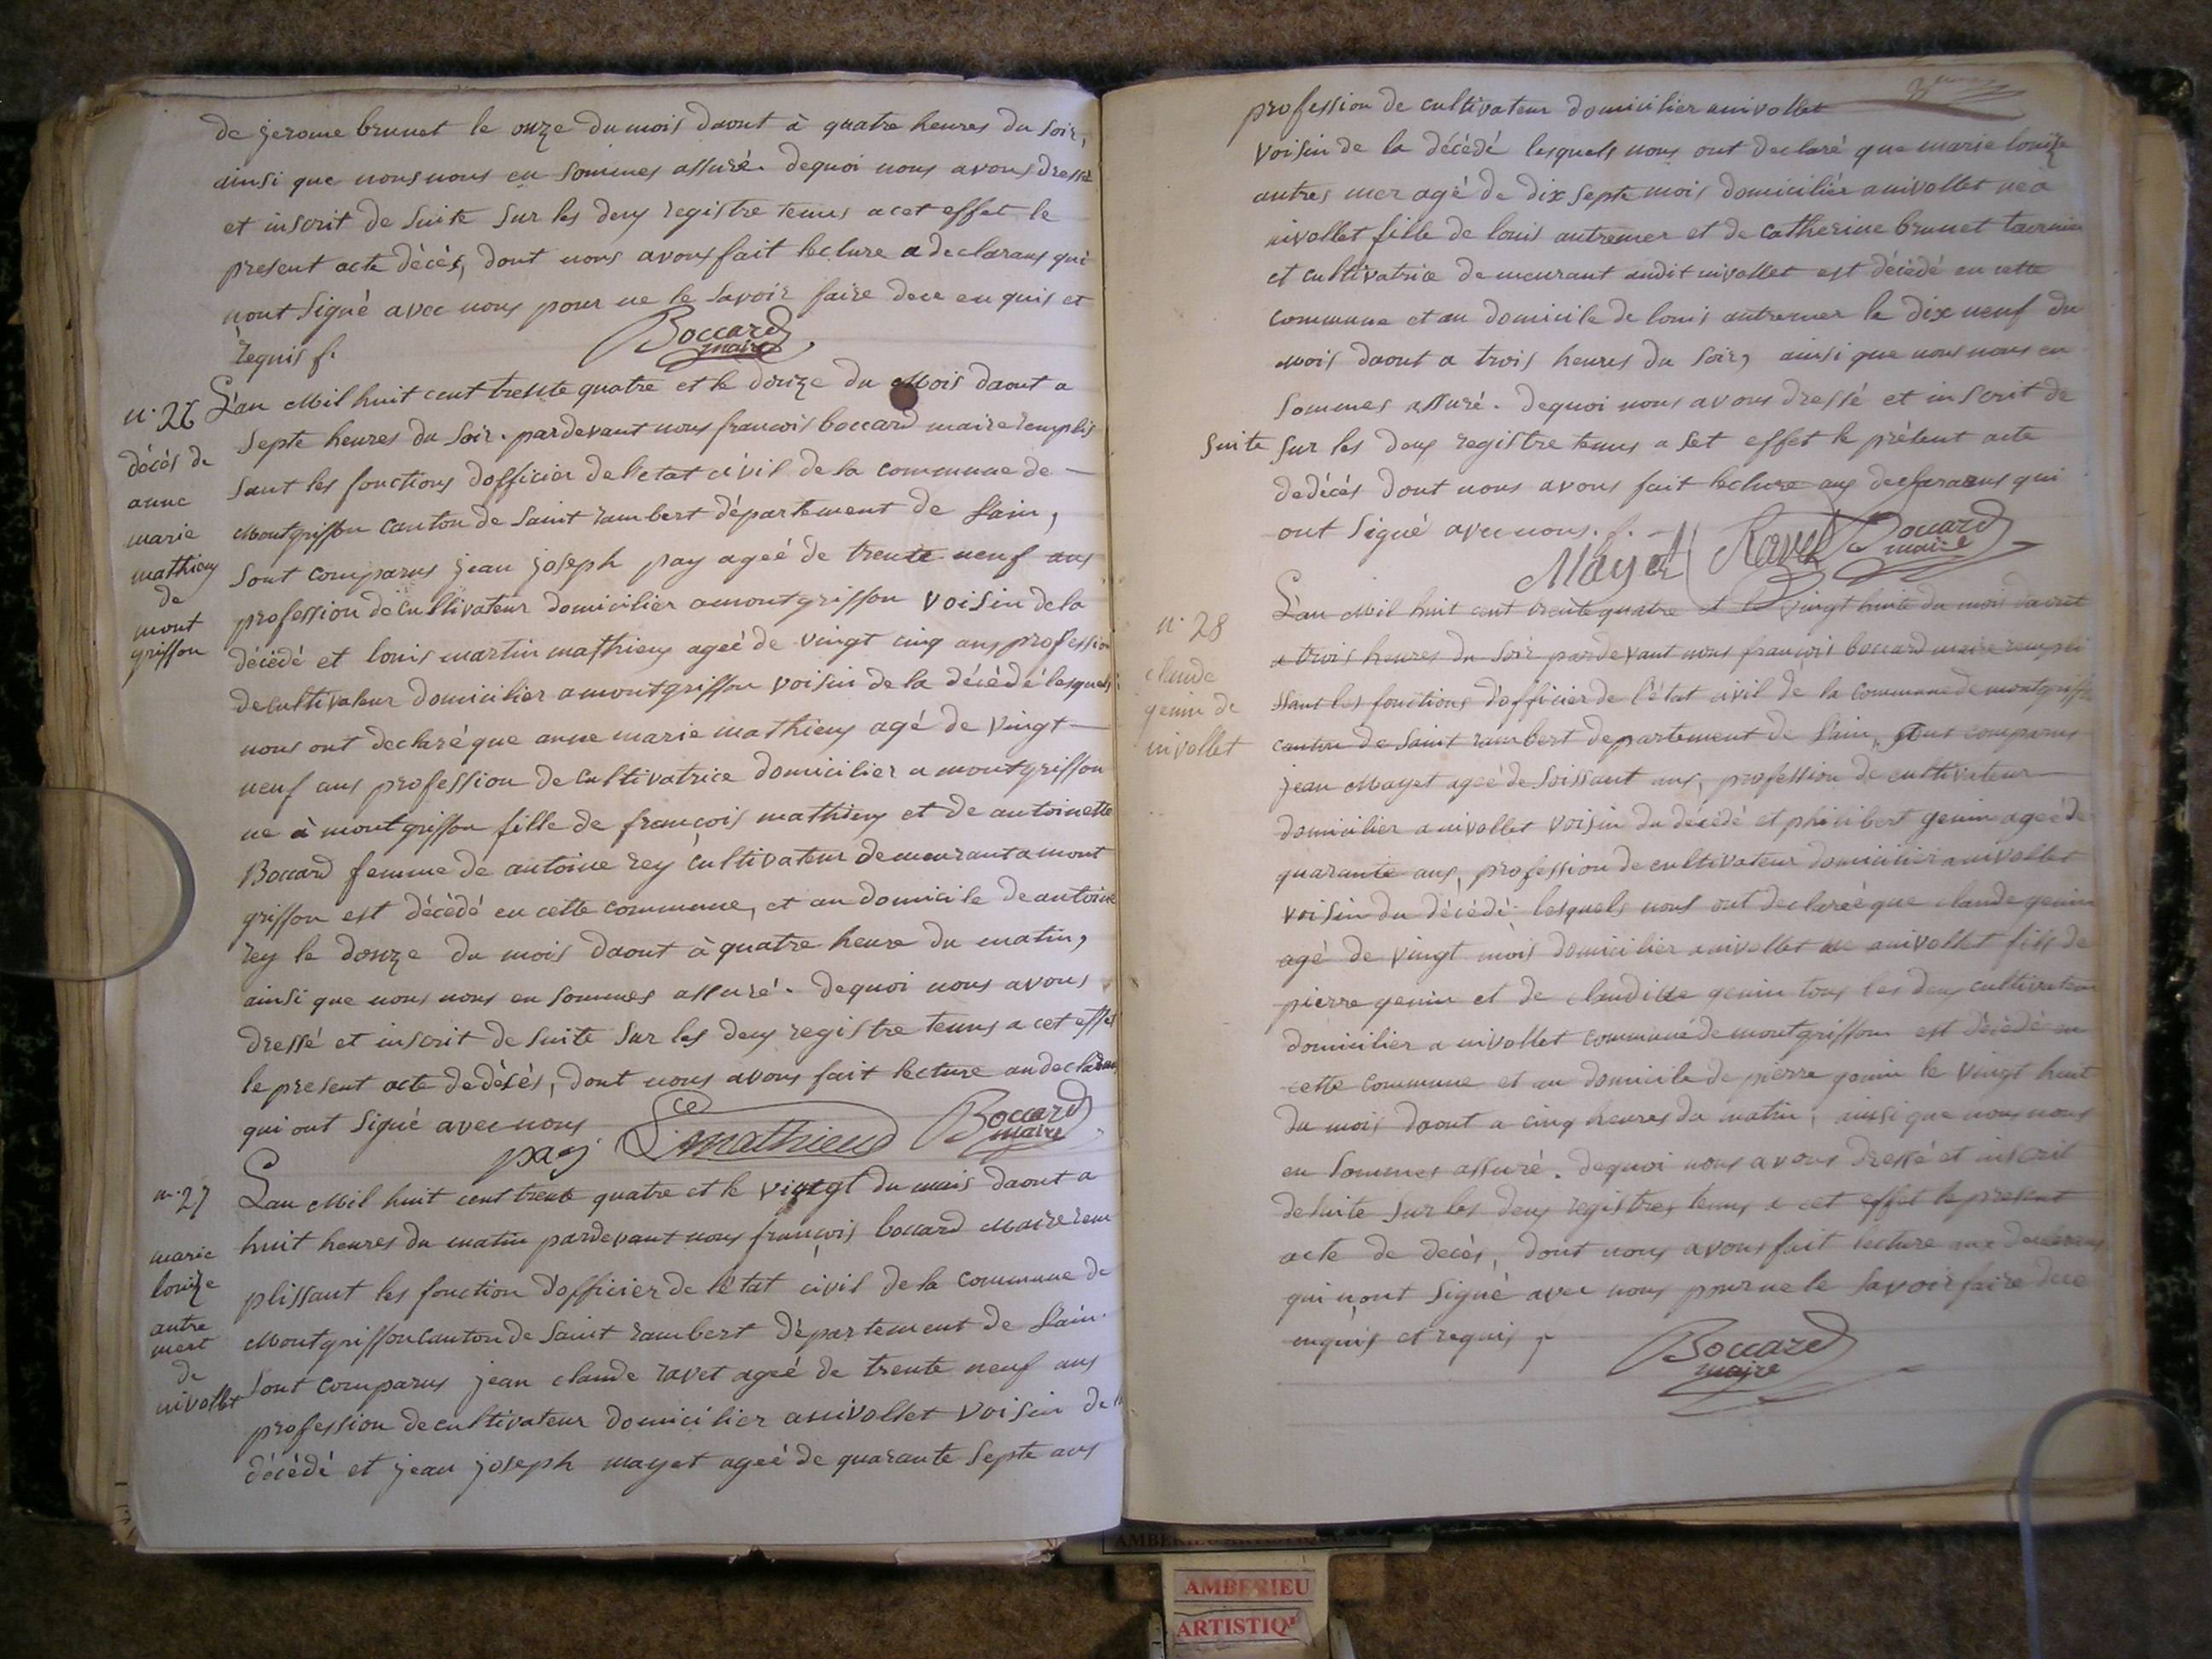 de jerome brunet le onze du mois daout à quatre heures du soir,
ainsi que nous nous en sommes assuré. dequoi nous avons dressé
et inscrit de suite sur les deux registre tenus acet effet le
present acte décès, dont nous avons fait lecture a declarans qui
nont signé avec nous pour ne le savoir faire dece enquis et
requis f.
Boccard
maire
n. 26
décés de
anne
marie
mathieu
de
mont
griffon
L'an Mil huit cent trente quatre et le douze du Mois daout a
septe heures du soir. pardevant nous francois boccard maire remplis
sant les fonctions dofficier de l'etat civil de la commune de
Montgriffon canton de Saint rambert département de Lain,
sont comparus jean joseph pay ageé de trente neuf ans
profession de cultivateur domicilier amontgriffon voisin dela
décédé et louis martin mathieu ageé de vingt cinq ans profession
decultivateur domicilier amontgriffon voisin de la décédé lesquels
nous ont declaré que anne marie mathieu agé de vingt
neuf ans profession de cultivatrice domicilier a montgriffon
ne à montgriffon fille de françois mathieu et de antoinette
Boccard femme de antoine rey cultivateur demeurant a mont
griffon est décédé en cette commune, et au domicile de antoine
rey le douze du mois daout à quatre heure du matin,
ainsi que nous nous en sommes assuré. dequoi nous avons
dressé et inscrit de suite sur les deux registre tenus a cet effet
le present acte dedécés, dont nous avons fait lecture audeclarans
qui ont signé avec nous
pay
mathieu
Boccard
maire
n. 27
marie
louize
autre
mert
de
nivollet
Lan Mil huit cent trente quatre et le vingt du mois daout a
huit heures du matin pardevant nous françois boccard Maire rem
plissant les fonction d'officier de l'état civil de la commune de
Montgriffon canton de Saint rambert département de Lain.
sont comparus jean claude ravet ageé de trente neuf ans
profession decultivateur domicilier anivollet voisin de la
décédé et jean joseph mayet ageé de quarante septe ans
profession de cultivateur domicilier anivollet
voisin de la décédé lesquels nous ont declaré que marie louize
autres mer agé de dix septe mois domiciliée anivollet née a
nivollet fille de louis autremer et de catherine brunet
et cultivatrice demeurant audit nivollet est décédé en cette
commune et au domicile de louis autremer le dix neuf du
mois daout a trois heures du soir, ainsi que nous nous en
sommes assuré. dequoi nous avons dressé et inscrit de
suite sur les deux registre tenus a set effet le présent acte
dedécés dont nous avons fait lecture aux declarans qui
ont signé avec nous. f.
Mayet
Ravet
Boccard
maire
n. 28
claude
genin de
nivollet
L'an Mil huit cent trente quatre et le vingt huite du mois daout
a trois heures du soir pardevant nous françois boccard maire rempli
ssant les fonctions d'officier de l'état civil de la commune de montgriffon
canton de Saint rambert departement de Lain, sont comparus
jean Mayet ageé de soissant ans, profession de cultivateur
domicilier anivollet voisin du décédé et philibert genin ageé de
quarante ans, profession de cultivateur domicilier anivollet
voisin du décédé lesquels nous ont declareé que claude genin
agé de vingt mois domicilier anivollet ne anivollet fils de
pierre genin et de claudine genin tous les deux cultivateur
domicilier a nivollet commune de montgriffon est décédé en
cette commune et au domicile de pierre genin le vingt huit
du mois daout a cinq heures du matin, ainsi que nous nous
en sommes assuré. dequoi nous avons dressé et inscrit
de suite sur les deux registres tenus a cet effet le present
acte de decès, dont nous avons fait lecture aux declarans
qui nont signé avec nous pour ne le savoir faire dece
enquis et requis f
Boccard
maire
AMBERIEU
ARTISTIQU